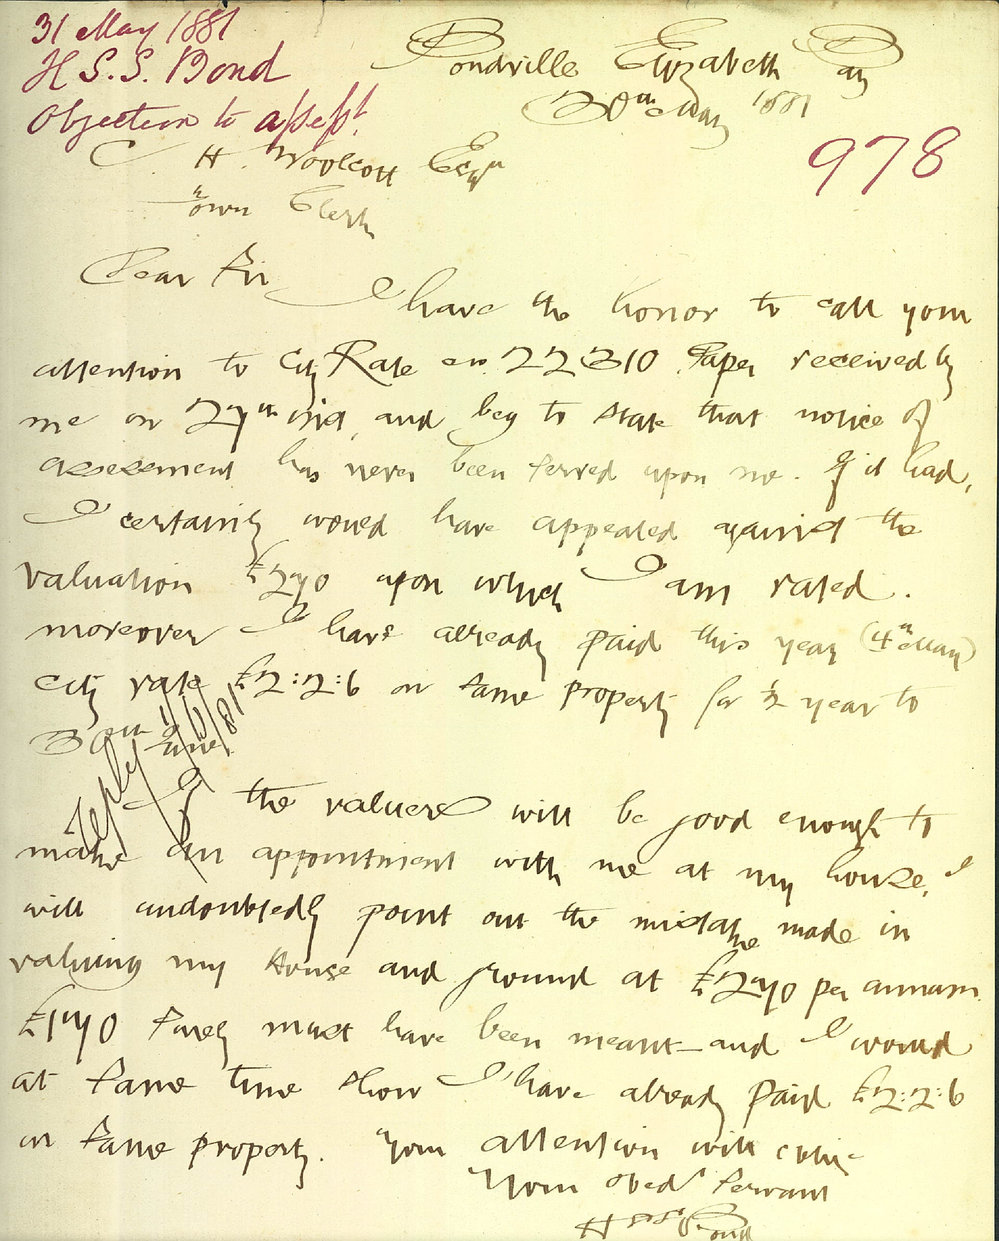 31 May 1881
H. S. S. Bond
Objection to assesst.
978
Bondville Elizabeth Bay
30th May 1881
C. H. Woolcott Esqr
Town Clerk
Dear Sir
I have the honor to call your
attention to City Rate no. 22310 Paper received by
me on 27th inst, and beg to state that notice of
assessment has never been served upon me. If it had,
I certainly would have appealed against the
valuation £270 upon which I am rated.
moreover I have already paid this year (4th May)
City rate £2:2:6 on same property for ½ year to
30th June.
Reply 1/6/81
If the valuers will be good enough to
make an appointment with me at my house, I
will undoubtedly point out the mistake made in
valuing my House and ground at £270 per annum.
£170 surely must have been meant – and I would
at same time show I have already paid £2:2:6
on same property. Your attention will oblige
Your obedt servant
H S S Bond